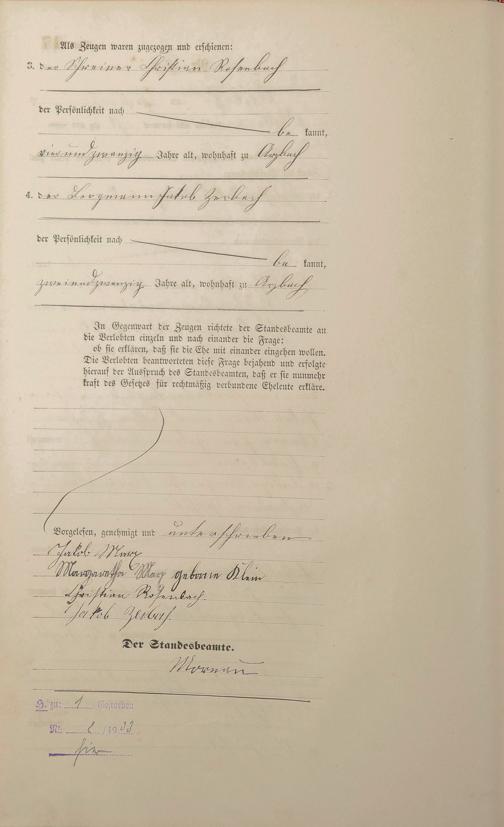 Als Zeugen waren zugezogen und erschienen:
3. der Schreiner Christian Rosenbach
der Persönlichkeit nach
be kannt,
vierundzwanzig Jahre alt, wohnhaft zu Arzbach
4. der Bergmann Jakob Zerbach
der Persönlichkeit nach
be kannt,
zweiundzwanzig Jahre alt, wohnhaft zu Arzbach
In Gegenwart der Zeugen richtete der Standesbeamte an
die Verlobten einzeln und nach einander die Frage:
ob sie erklären, daß sie die Ehe mit einander eingehen wollen.
Die Verlobten beantworteten diese Frage bejahend und erfolgte
hierauf der Ausspruch des Standesbeamten, daß er sie nunmehr
kraft des Gesetzes für rechtmäßig verbundene Eheleute erkläre.
Vorgelesen, genehmigt und unterschrieben
Jakob Marx
Margaretha Marx geborne Klein
Christian Rosenbach.
Jakob Zerbach.
Der Standesbeamte.
1
Nr. 2 / 1933
hier